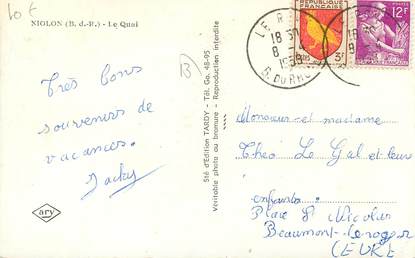 10 €
NIOLON (B. d.-R.) - Le Quai
Très bons
souvenirs de
vacances.
Jacky
ary
B
Sté d'Edition TARDY - Tél. Ga. 48-95
Véritable photo au bromure - Reproduction interdite
18 30
8
B. DU RHONE
REPUBLIQUE
FRANÇAISE
3F
12F
Monsieur et madame
Théo Le Gal et leur
enfants
Place St Nicolas
Beaumont-le-roger
(EURE)